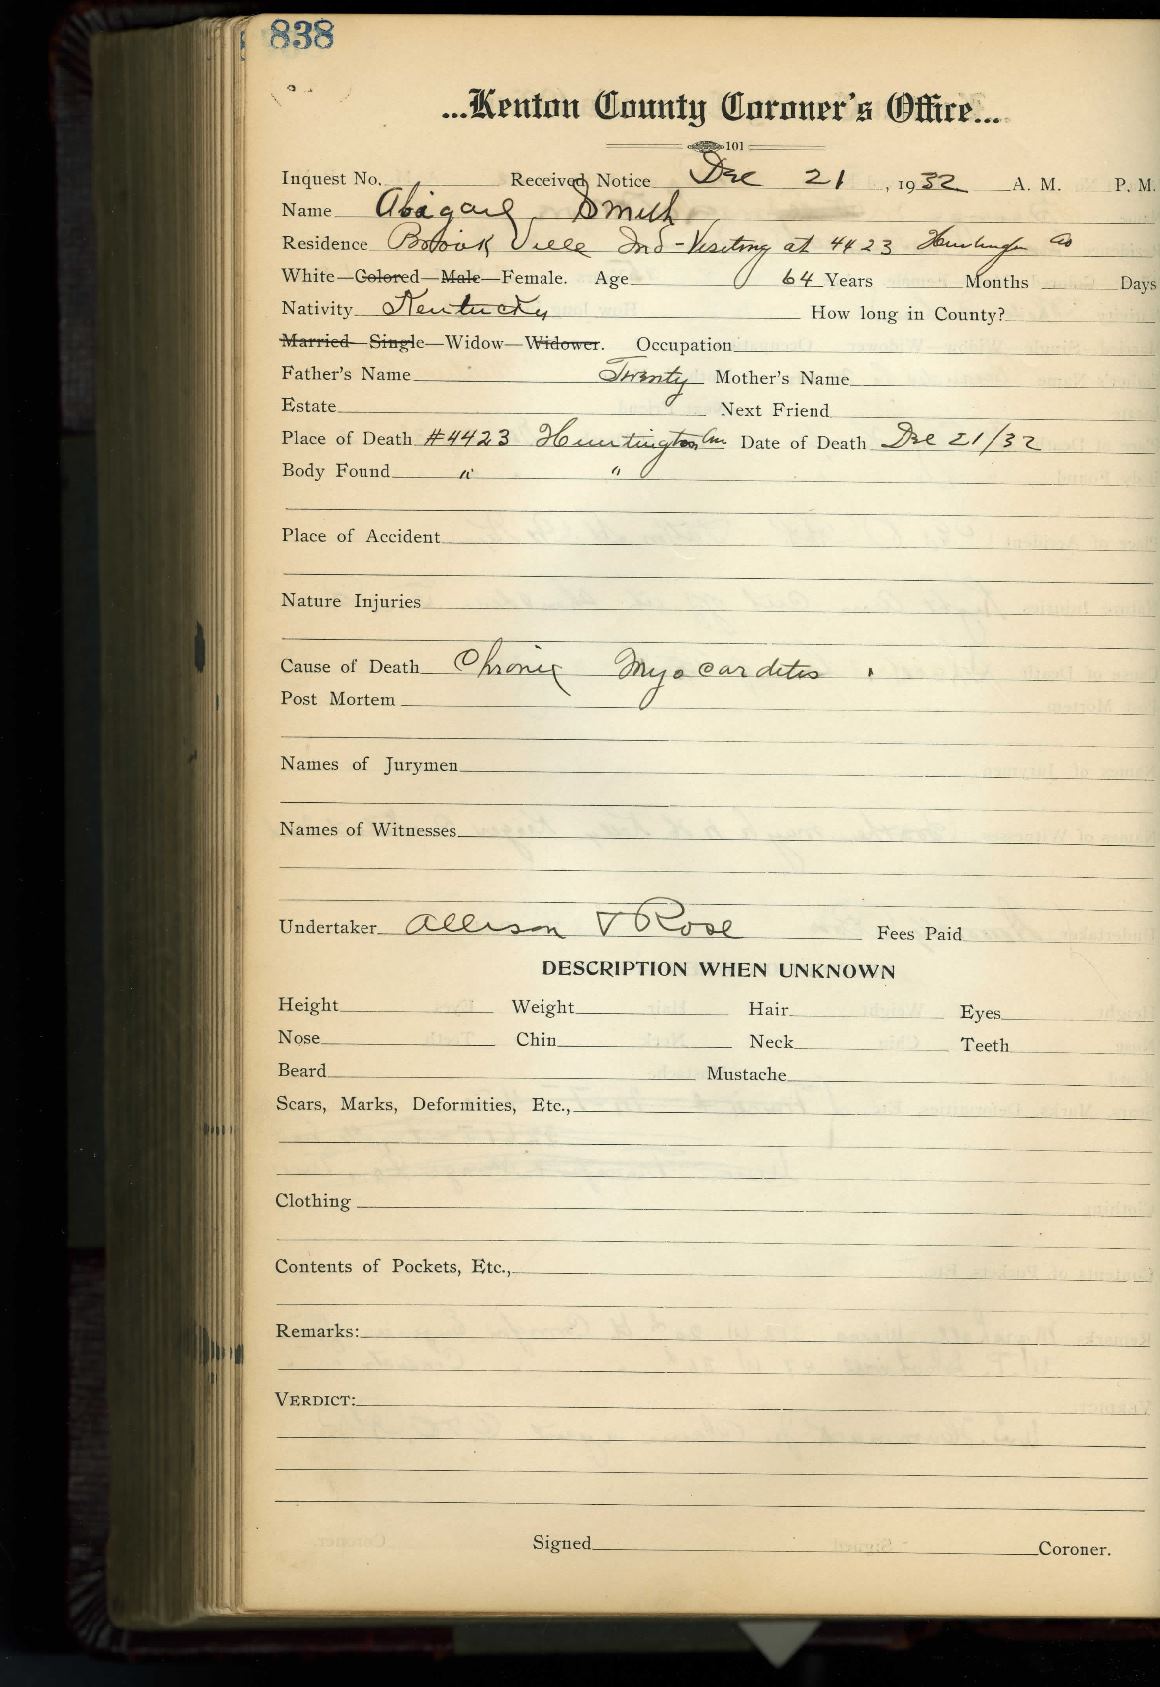 838
...Kenton County Coroner's Office...
101
Inquest No. Received Notice Dec 21, 1932 A. M. P. M.
Name Abigail Smith
Residence Brook Ville Ind - Visiting at 4423 Huntington
White—Colored—Male—Female. Age 64 Years Months Days
Nativity Kentucky How long in County?
Married—Single—Widow—Widower. Occupation
Father's Name Twenty Mother's Name
Estate Next Friend
Place of Death #4423 Huntington Av Date of Death Dec 21/32
Body Found " "
Place of Accident
Nature Injuries
Cause of Death Chronic Myocarditis .
Post Mortem
Names of Jurymen
Names of Witnesses
Undertaker Allison & Rose Fees Paid
DESCRIPTION WHEN UNKNOWN
Height Weight Hair Eyes
Nose Chin Neck Teeth
Beard Mustache
Scars, Marks, Deformities, Etc.,
Clothing
Contents of Pockets, Etc.,
Remarks:
VERDICT:
Signed Coroner.